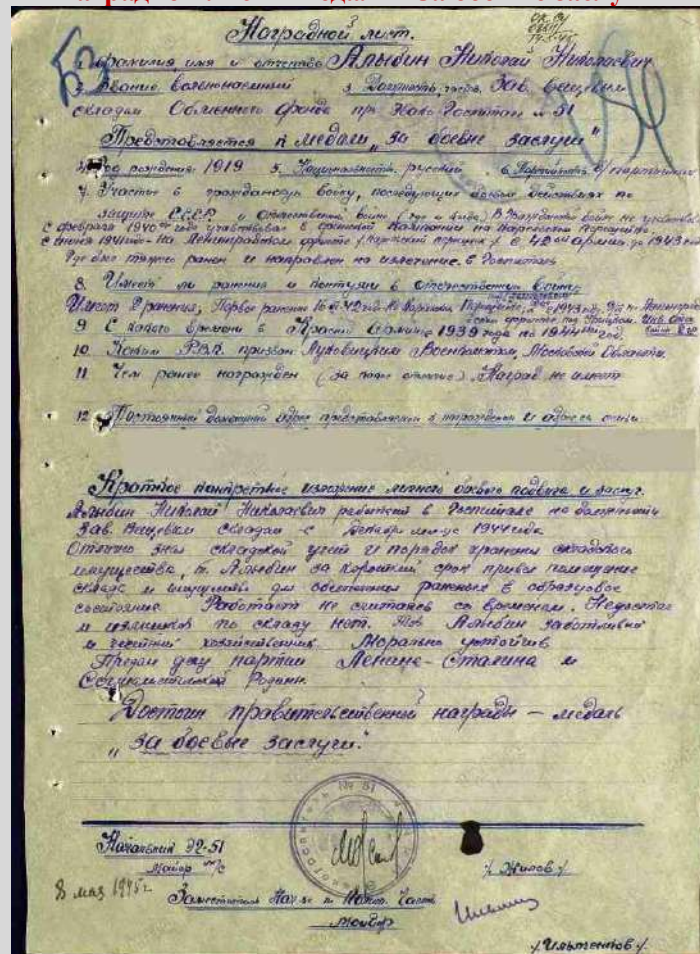 Наградной лист.
1. Фамилия, имя и отчество Алыбин Николай Николаевич
2. Звание вольнонаемный 3. Должность, часть Зав. вещевым
складом Обменного фонда при
Представляется к медали "За боевые заслуги"
4. Год рождения 1919 5. Национальность русский 6. Партийность б/партийный
7. Участие в гражданскую войну, последующих боевых действиях по
защите СССР и отечественной войне (где и когда) В Гражданской войне не участвовал
С февраля 1940 года участвовал в финской кампании на Карельском перешейке.
С июня 1941 года на Ленинградском фронте / Карельский перешеек / с 42ой армии до 1943
Где был тяжело ранен и направлен на излечение в Госпиталь
8. Имеет ли ранения и контузии в отечественной войне
Имеет 2 ранения; Первое ранение
9 С какого времени в Красной армии с 1939 года по 1944 год.
10. Каким РВК призван Луховицким Военкоматом, Московской Области.
11 Чем ранее награжден (за какие отличия) Наград не имеет
12 Постоянный домашний адрес представляемого к награждению и адрес семьи
Краткое конкретное изложение личного боевого подвига и заслуг.
Алыбин Николай Николаевич работает в Госпитале на должности
Зав. Вещевым складом с Декабря м-ца 1944 года
Отлично зная складской учет и порядок хранения складского
имущества, т. Алыбин за короткий срок привел помещение
склада и имущество для обеспечения раненых в образцовое
состояние. Работает не считаясь со временем. Недостач
и излишков по складу нет. Тов Алыбин заботливый
и честный хозяйственник. Морально устойчив
Предан делу партии Ленина-Сталина и
Социалистической Родине.
Достоин правительственной награды – медаль
"За боевые заслуги".
№ 51
Начальник ЭГ-51
Майор м/с
/ Жилов /
8 мая 1945 г.
Заместитель Нач-ка по
Майор